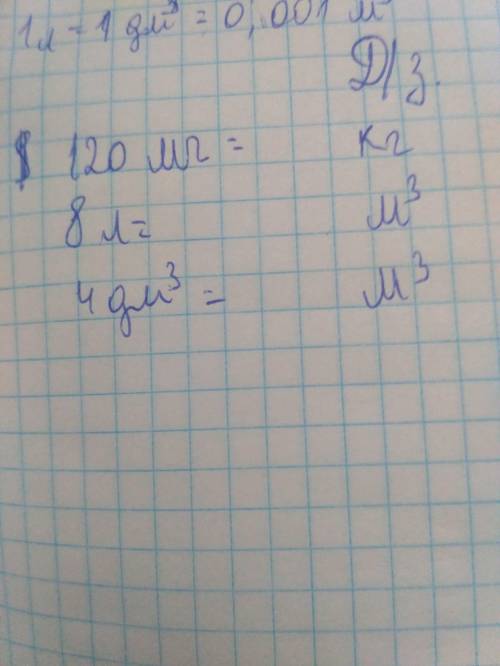 1л = 1 дм³ = 0,001 м
Д/з.
120 мг = кг
8 л = м³
4 дм³ = м³